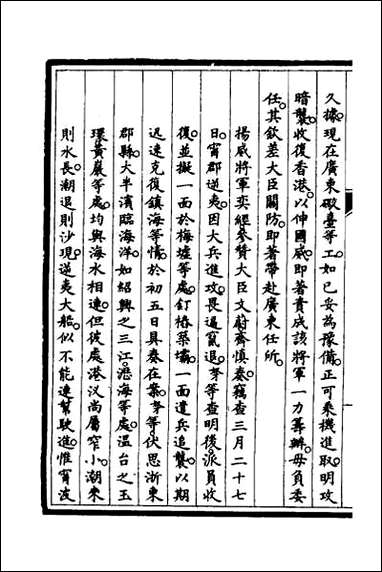 久據現在廣東礮臺等工如已妥為豫備正可乘機進取明攻
暗襲收復香港以伸國威即著責成該將軍一力籌辦毋負委
任其欽差大臣關防即著帶赴廣東任所
揚威將軍奕經參贊大臣文蔚齋慎奏竊查三月二十七
日甯郡逆夷因大兵進攻畏逼竄退等查明後派員收
復並擬一面於梅墟等處釘椿築壩一面遣兵追襲以期
迅速克復鎮海等情於初五日具奏在案等伏思浙東
郡縣大半濱臨海洋如紹興之三江瀝海等處溫台之玉
環黃巖等處均與海水相連但彼處港汊尚屬窄小潮來
則水長潮退則沙現逆夷大船似不能連幫駛進惟甯波